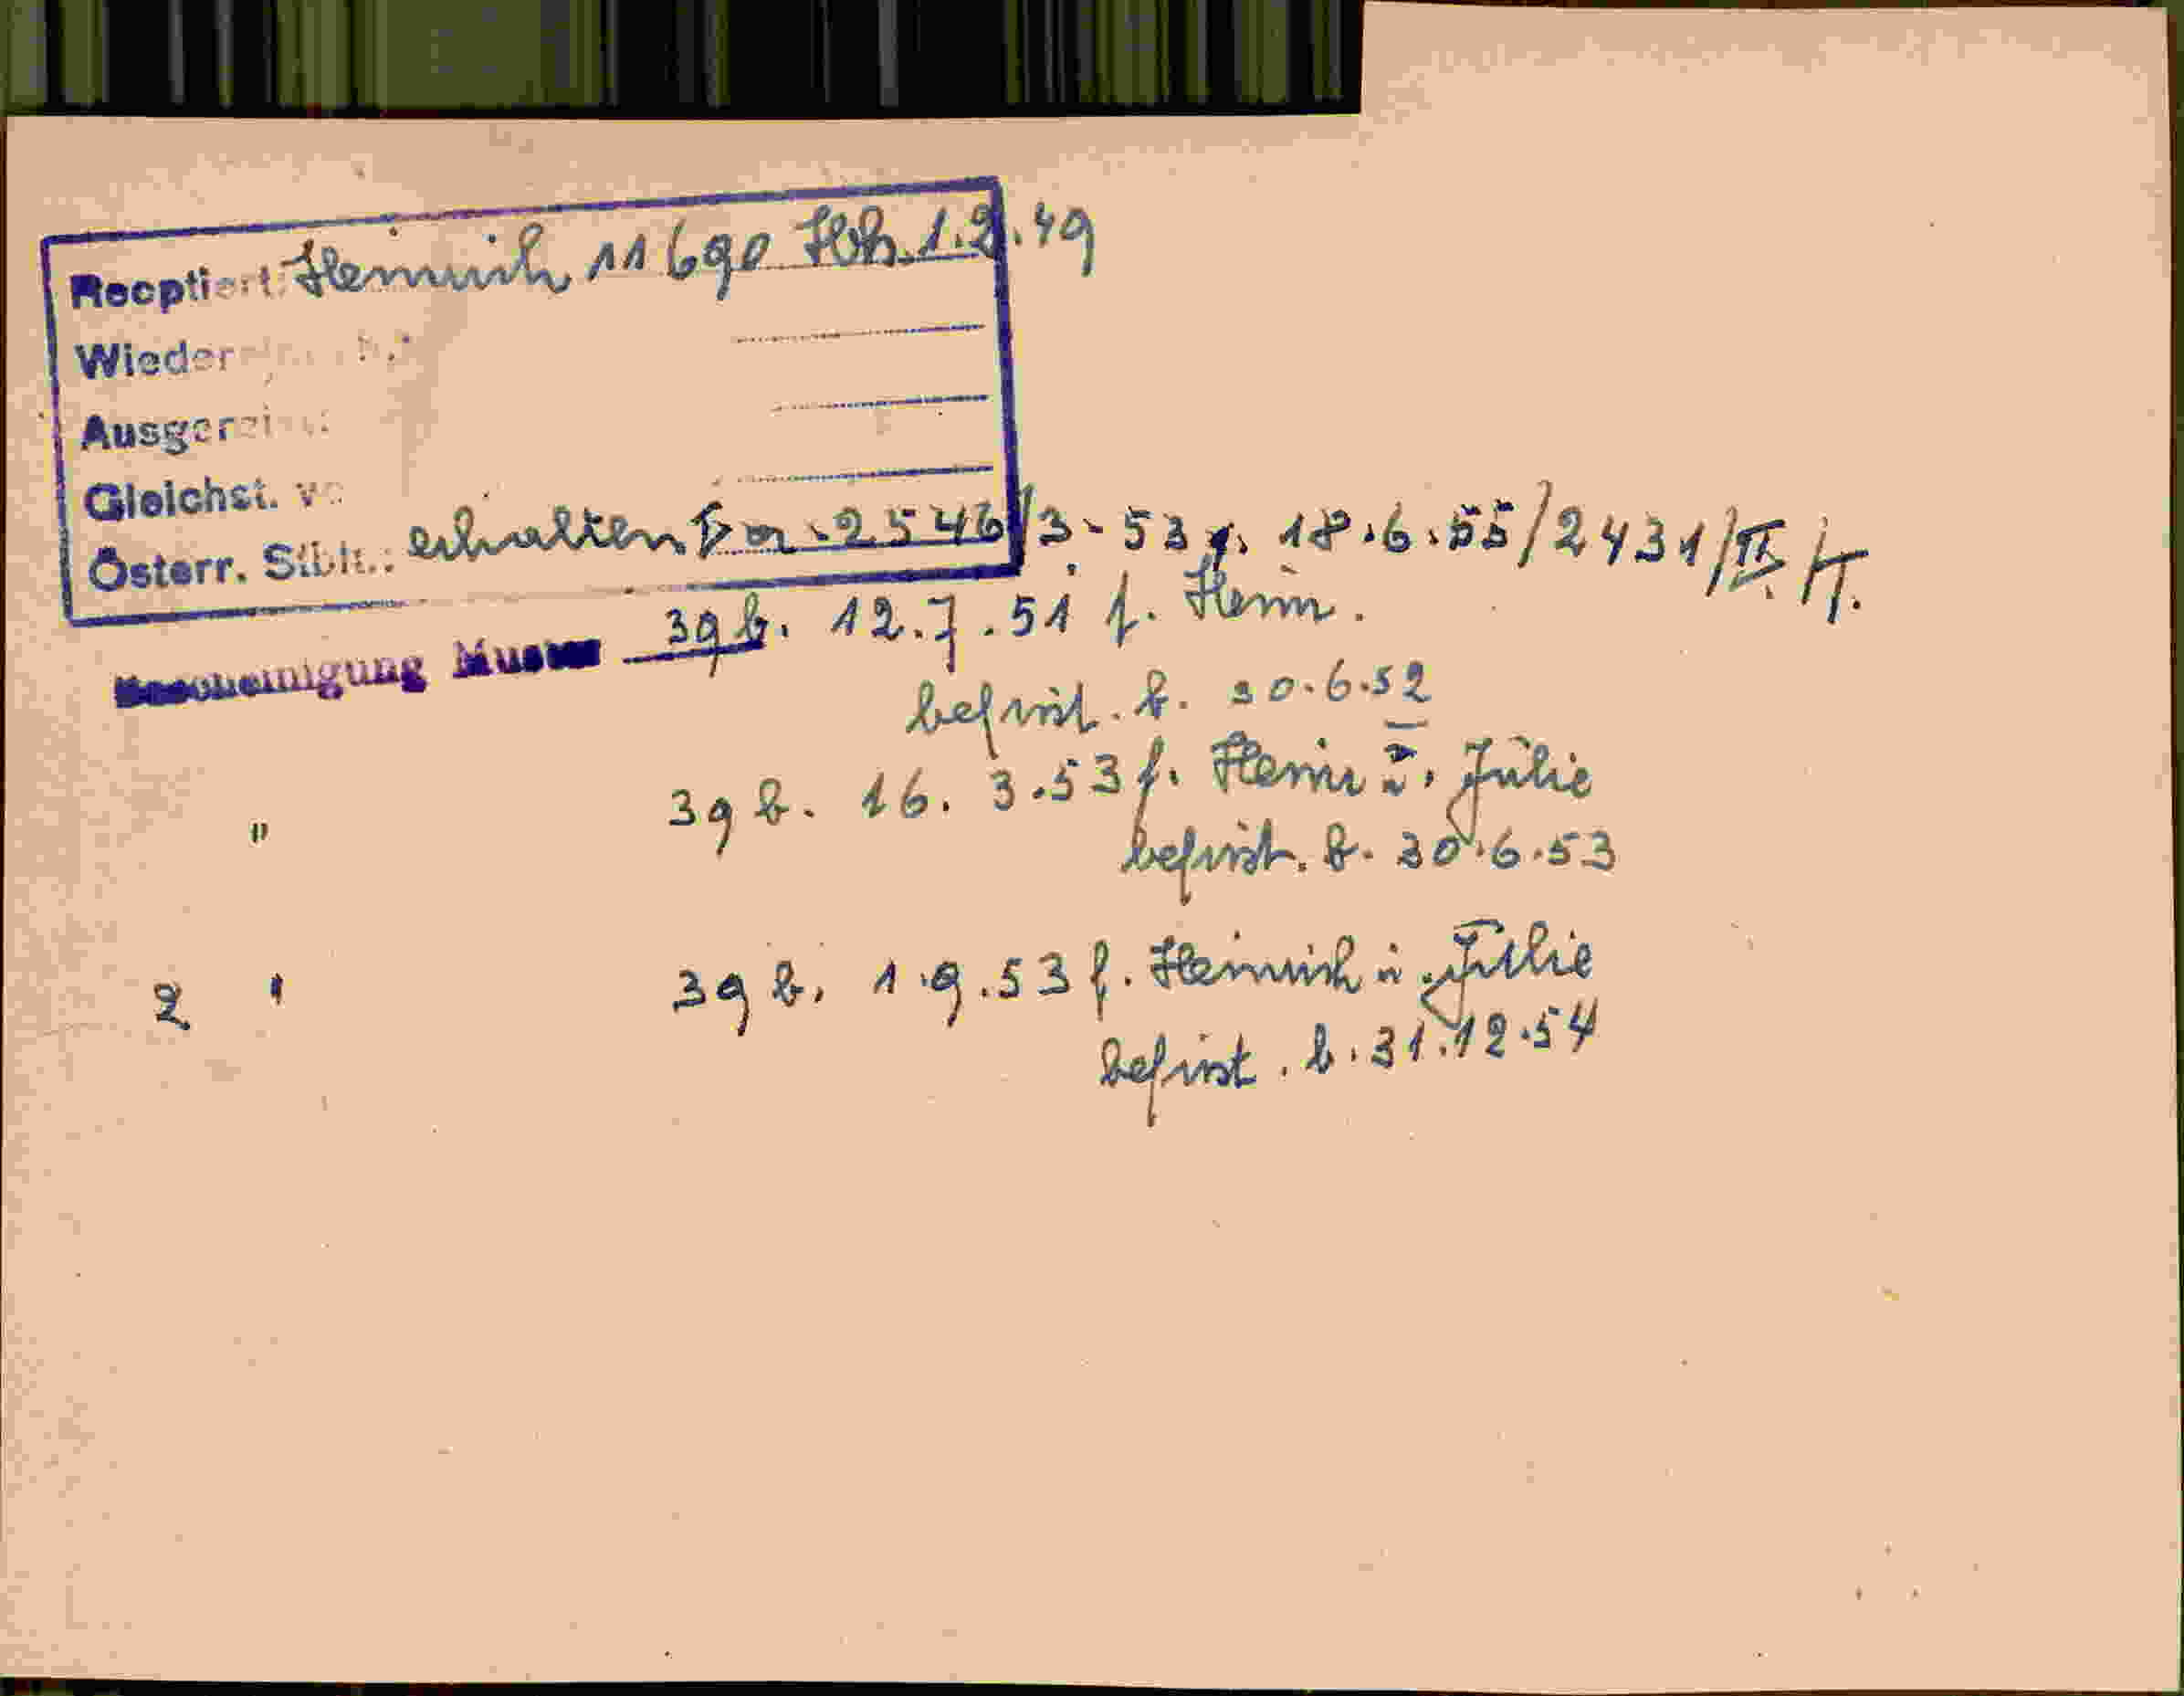 Reoptiert: Heinrich 11690 Hh. 1.2.49
Wieder
Ausgereist:
Gleichst. v
Österr. Stbh.: erhalten 2546/3-53 v. 18.6.55/2431/II/T.
Bescheinigung Muster 39 b. 12.7.51 f. Heinr.
befrist. b. 30.6.52
" 39 b. 16.3.53 f. Heinr u. Julie
befrist. b. 30.6.53
2 " 39 b. 1.9.53 f. Heinrich u. Julie
befrist. b. 31.12.54